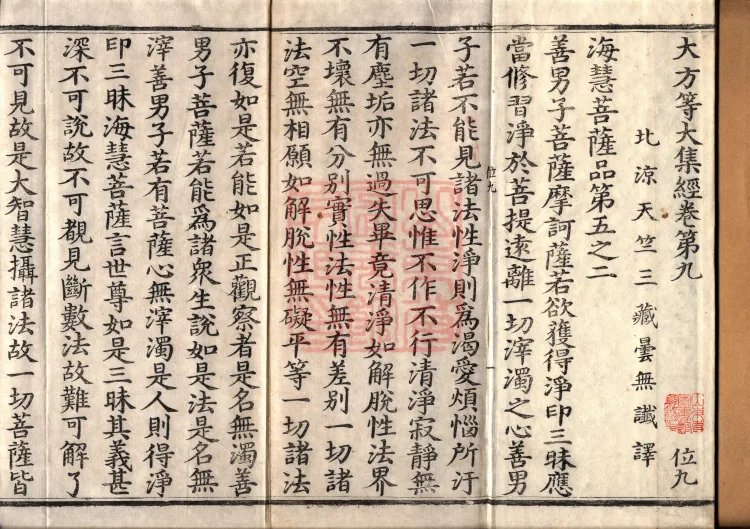 大方等大集經卷第九 位九
北涼天竺三藏曇無讖譯
海慧菩薩品第五之二
善男子菩薩摩訶薩若欲獲得淨印三昧應
當修習淨於菩提遠離一切滓濁之心善男
位九
子若不能見諸法性淨則為渴愛煩惱所汙
一切諸法不可思惟不作不行清淨寂靜無
有塵垢亦無過失畢竟清淨如解脫性法界
不壞無有分別實性法性無有差別一切諸
法空無相願如解脫性無礙平等一切諸法
亦復如是若能如是正觀察者是名無濁善
男子菩薩若能為諸眾生說如是法是名無
滓善男子若有菩薩心無滓濁是人則得淨
印三昧海慧菩薩言世尊如是三昧其義甚
深不可說故不可覩見斷數法故難可解了
不可見故是大智慧攝諸法故一切菩薩皆